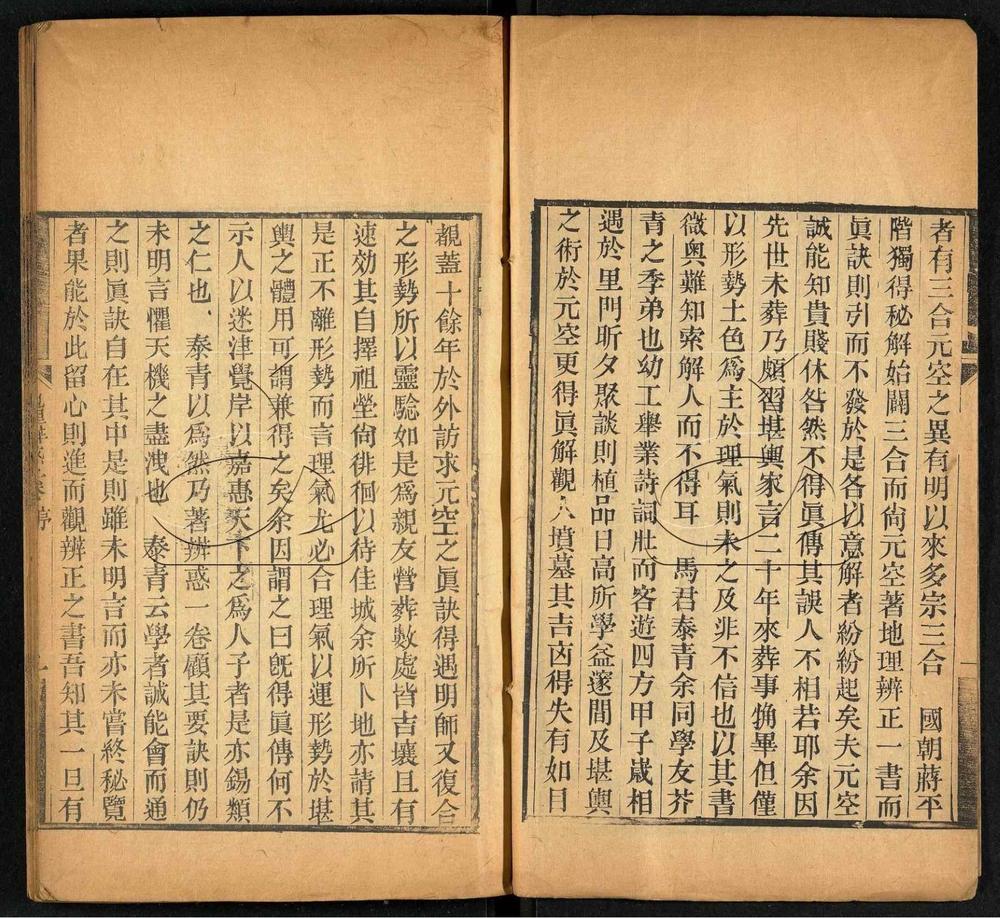 者有三合元空之異有明以來多宗三合　國朝蔣平
階獨得秘解始闢三合而尙元空著地理辨正一書而
眞訣則引而不發於是各以意解者紛紛起矣夫元空
誠能知貴賤休咎然不得眞傳其誤人不相若耶余因
先世未葬乃頗習堪輿家言二十年來葬事觕畢但僅
以形勢土色爲主於理氣則未之及非不信也以其書
微奥難知索解人而不得耳　馬君泰青余同學友芥
青之季弟也幼工舉業詩詞壯而客遊四方甲子歲相
遇於里門昕夕聚談則植品日高所學益邃間及堪輿
之術於元空更得眞解觀人墳墓其吉凶得失有如目
覩蓋十餘年於外訪求元空之眞訣得遇明師又復合
之形勢所以靈驗如是爲親友營葬數處皆吉壤且有
速効其自擇祖塋尙徘徊以待佳城余所卜地亦請其
是正不離形勢而言理氣尤必合理氣以運形勢於堪
輿之體用可謂兼得之矣余因謂之曰旣得眞傳何不
示人以迷津覺岸以嘉惠天下之爲人子者是亦錫類
之仁也　泰青以爲然乃著辨惑一卷顧其要訣則仍
未明言懼天機之盡洩也　泰青云學者誠能會而通
之則眞訣自在其中是則雖未明言而亦未嘗終秘覽
者果能於此留心則進而觀辨正之書吾知其一旦有